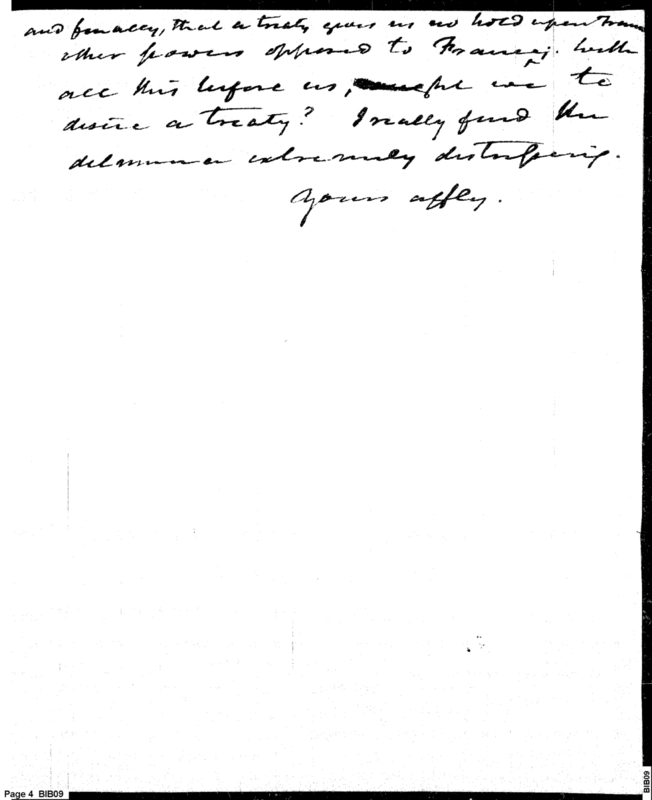 and finally, that a treaty gives us no hold upon
other powers opposed to France; with
all this before us, ought we to
desire a treaty? I really find the
dilemma extremely disturbing.
Yours affly.
Page 4 BIB09
BIB09